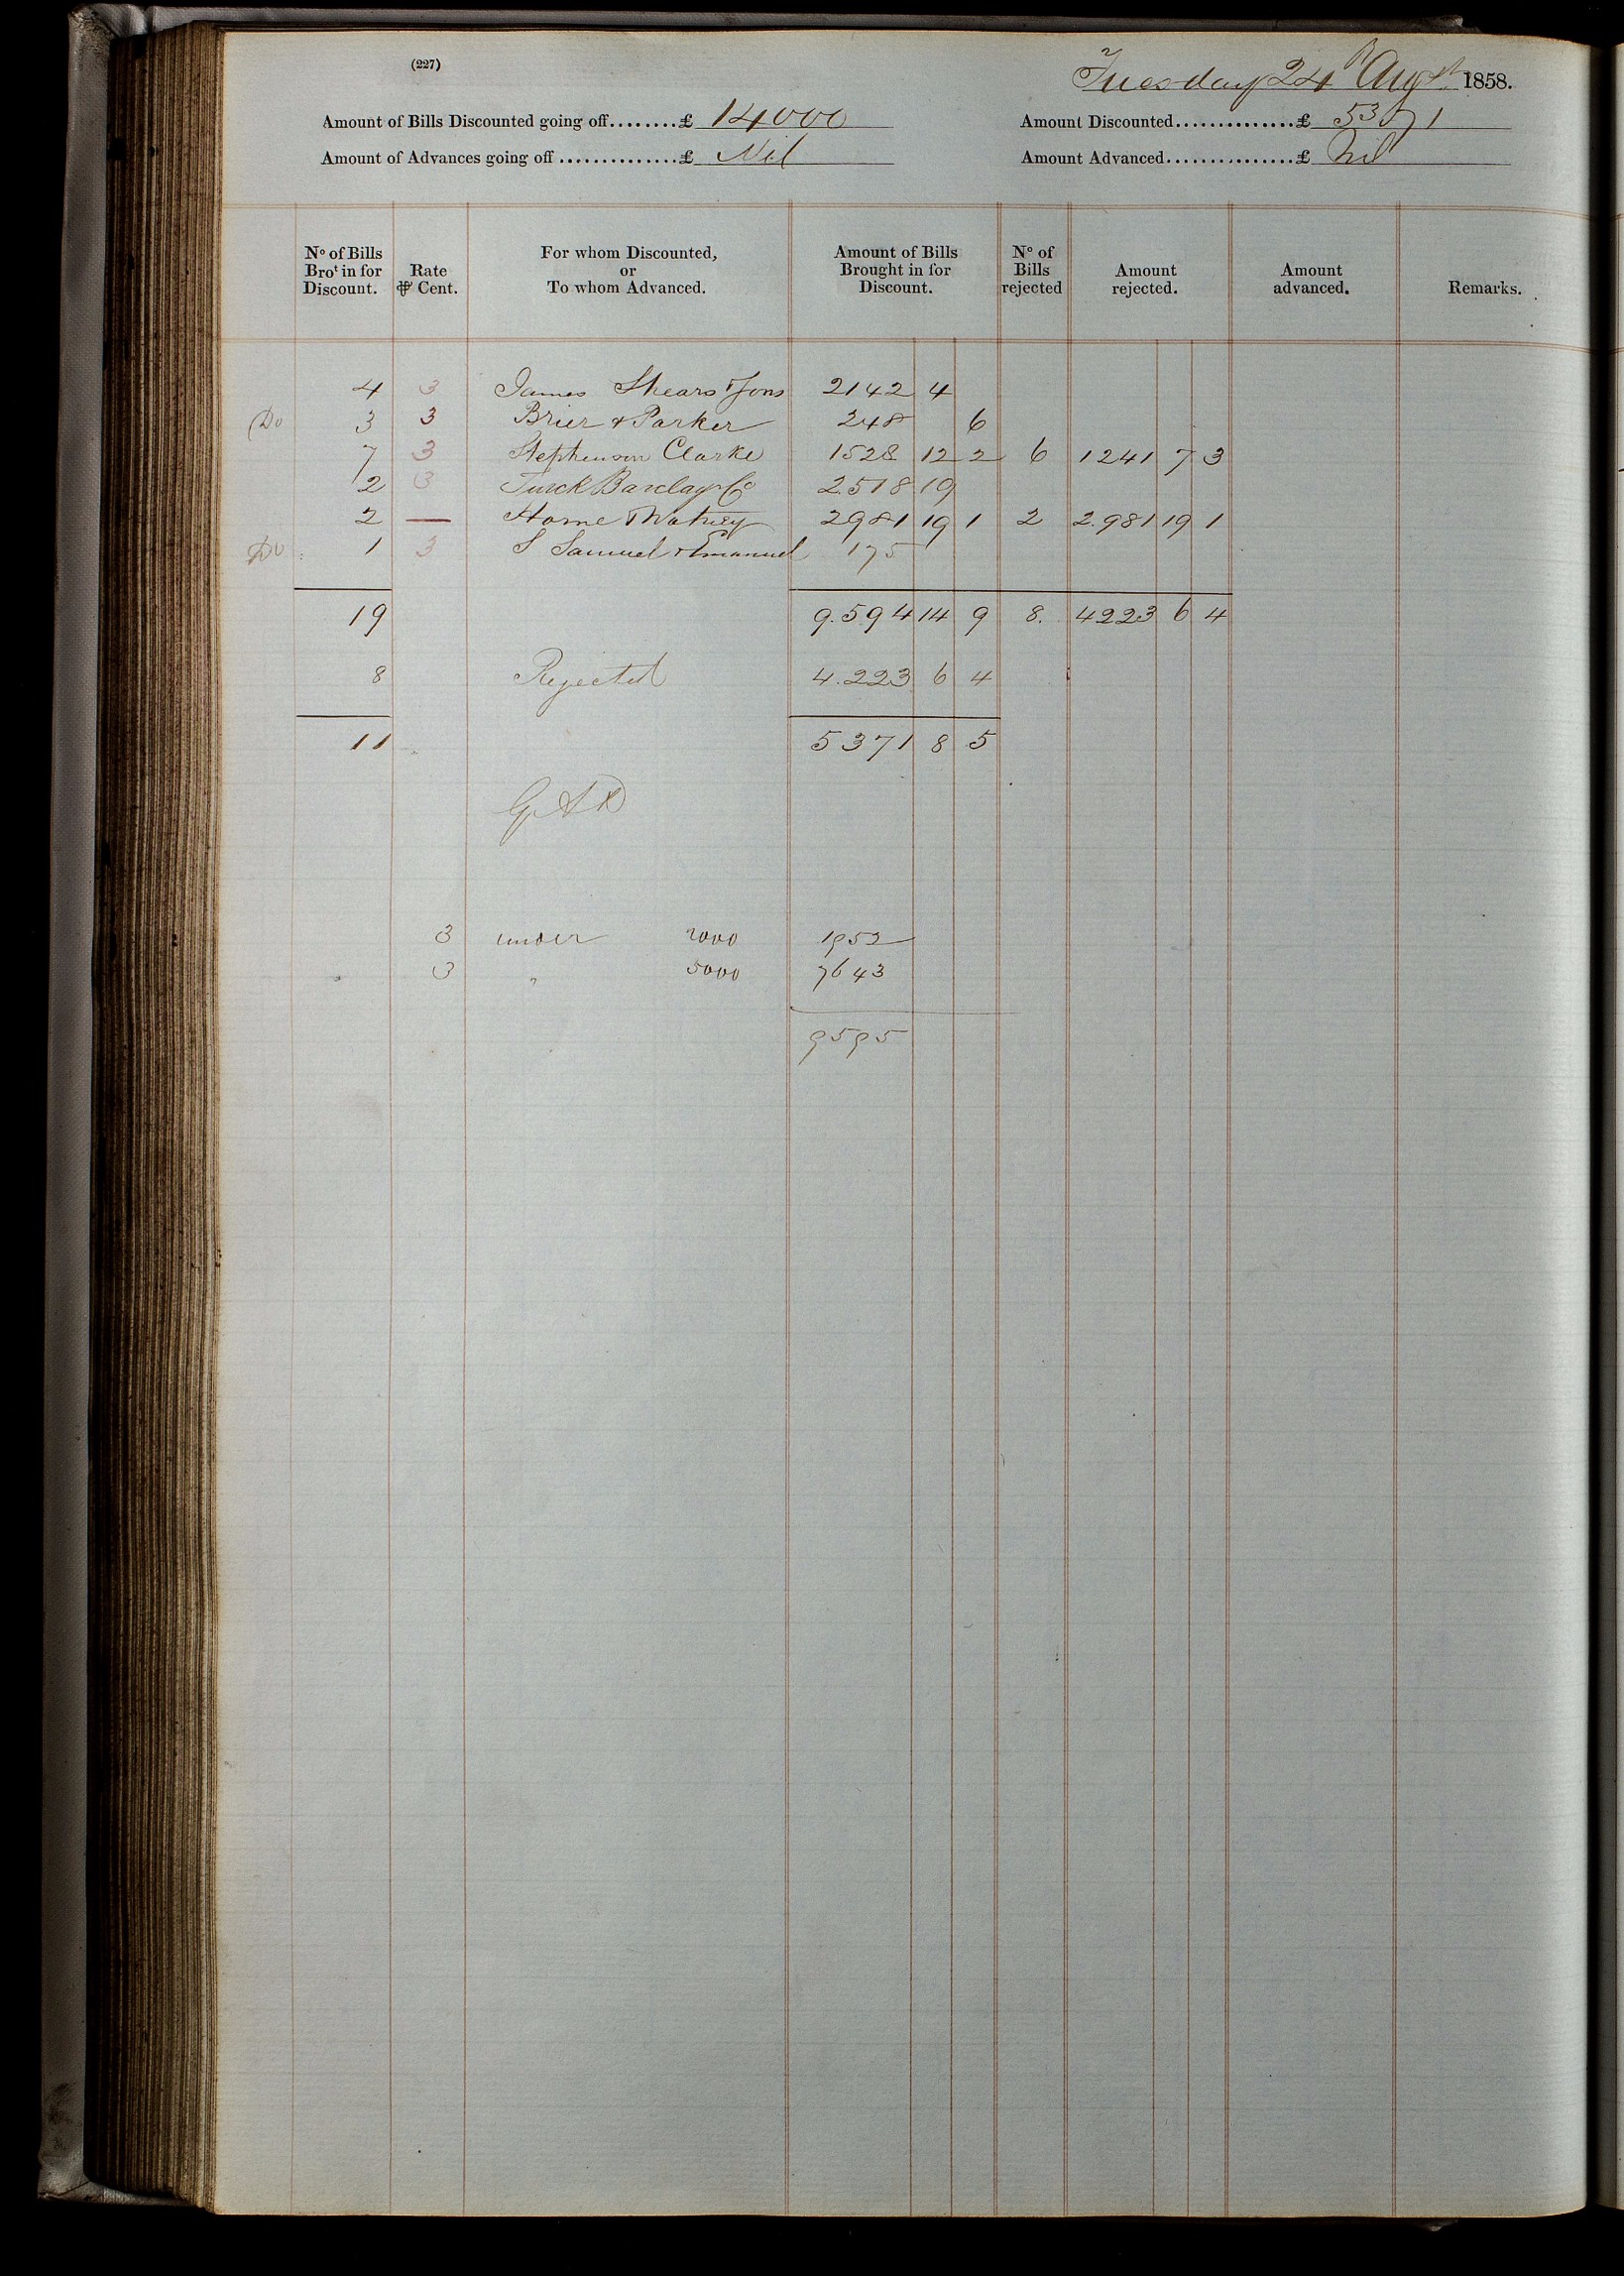 (227)
Tuesday 24th Augst 1858.
Amount of Bills Discounted going off........£ 14000 Amount Discounted..............£ 5371
Amount of Advances going off..............£ Nil Amount Advanced...............£ Nil
No of Bills Brot in for Discount. Rate ⅌ Cent. For whom Discounted, or To whom Advanced. Amount of Bills Brought in for Discount. No of Bills rejected Amount rejected. Amount advanced. Remarks.
4 3 James Shears & Sons 2142 4
Do 3 3 Brier & Parker 248 6
7 3 Stephenson Clarke 1528 12 2 6 1241 7 3
2 3 Barclay & Co 2518 19
2 — 2981 19 1 2 2.981 19 1
Do 1 3 S Samuel & Emanuel 175
19 9.594 14 9 8. 4223 6 4
8 Rejected 4.223 6 4
11 5371 8 5
3 under 2000 1952
3 " 5000 7643
9595